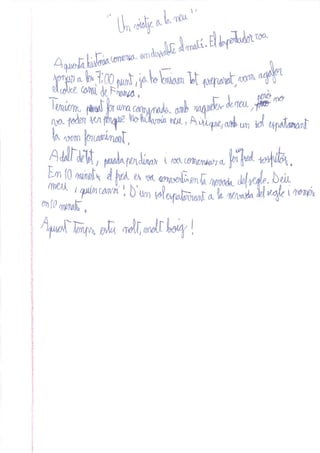 "Un viatge a la neu"
Aquesta història comença un dissabte al matí. El despertador va
sonar a les 7:00 punt, ja ho teníem tot preparat, vam agafar
el cotxe camí de França.
Teníem per fer una caminada amb raquetes de neu, però no
va poder ser perquè no hi havia neu, Així que, amb un sol espatarrant
la vem fer caminant.
A dalt de tot, parada per dinar i va començar a fer fred sospitós.
En 10 minuts el fred es va convertir en la nevada del segle. Déu
meu, i quin canvi! D'un sol espatarrant a la nevada del segle i només
en 10 minuts.
Aquest temps està molt, molt boig!